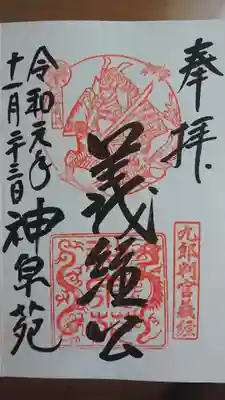 奉拝
九郎判官義経
義經公
令和元年
十一月二十三日
神泉苑